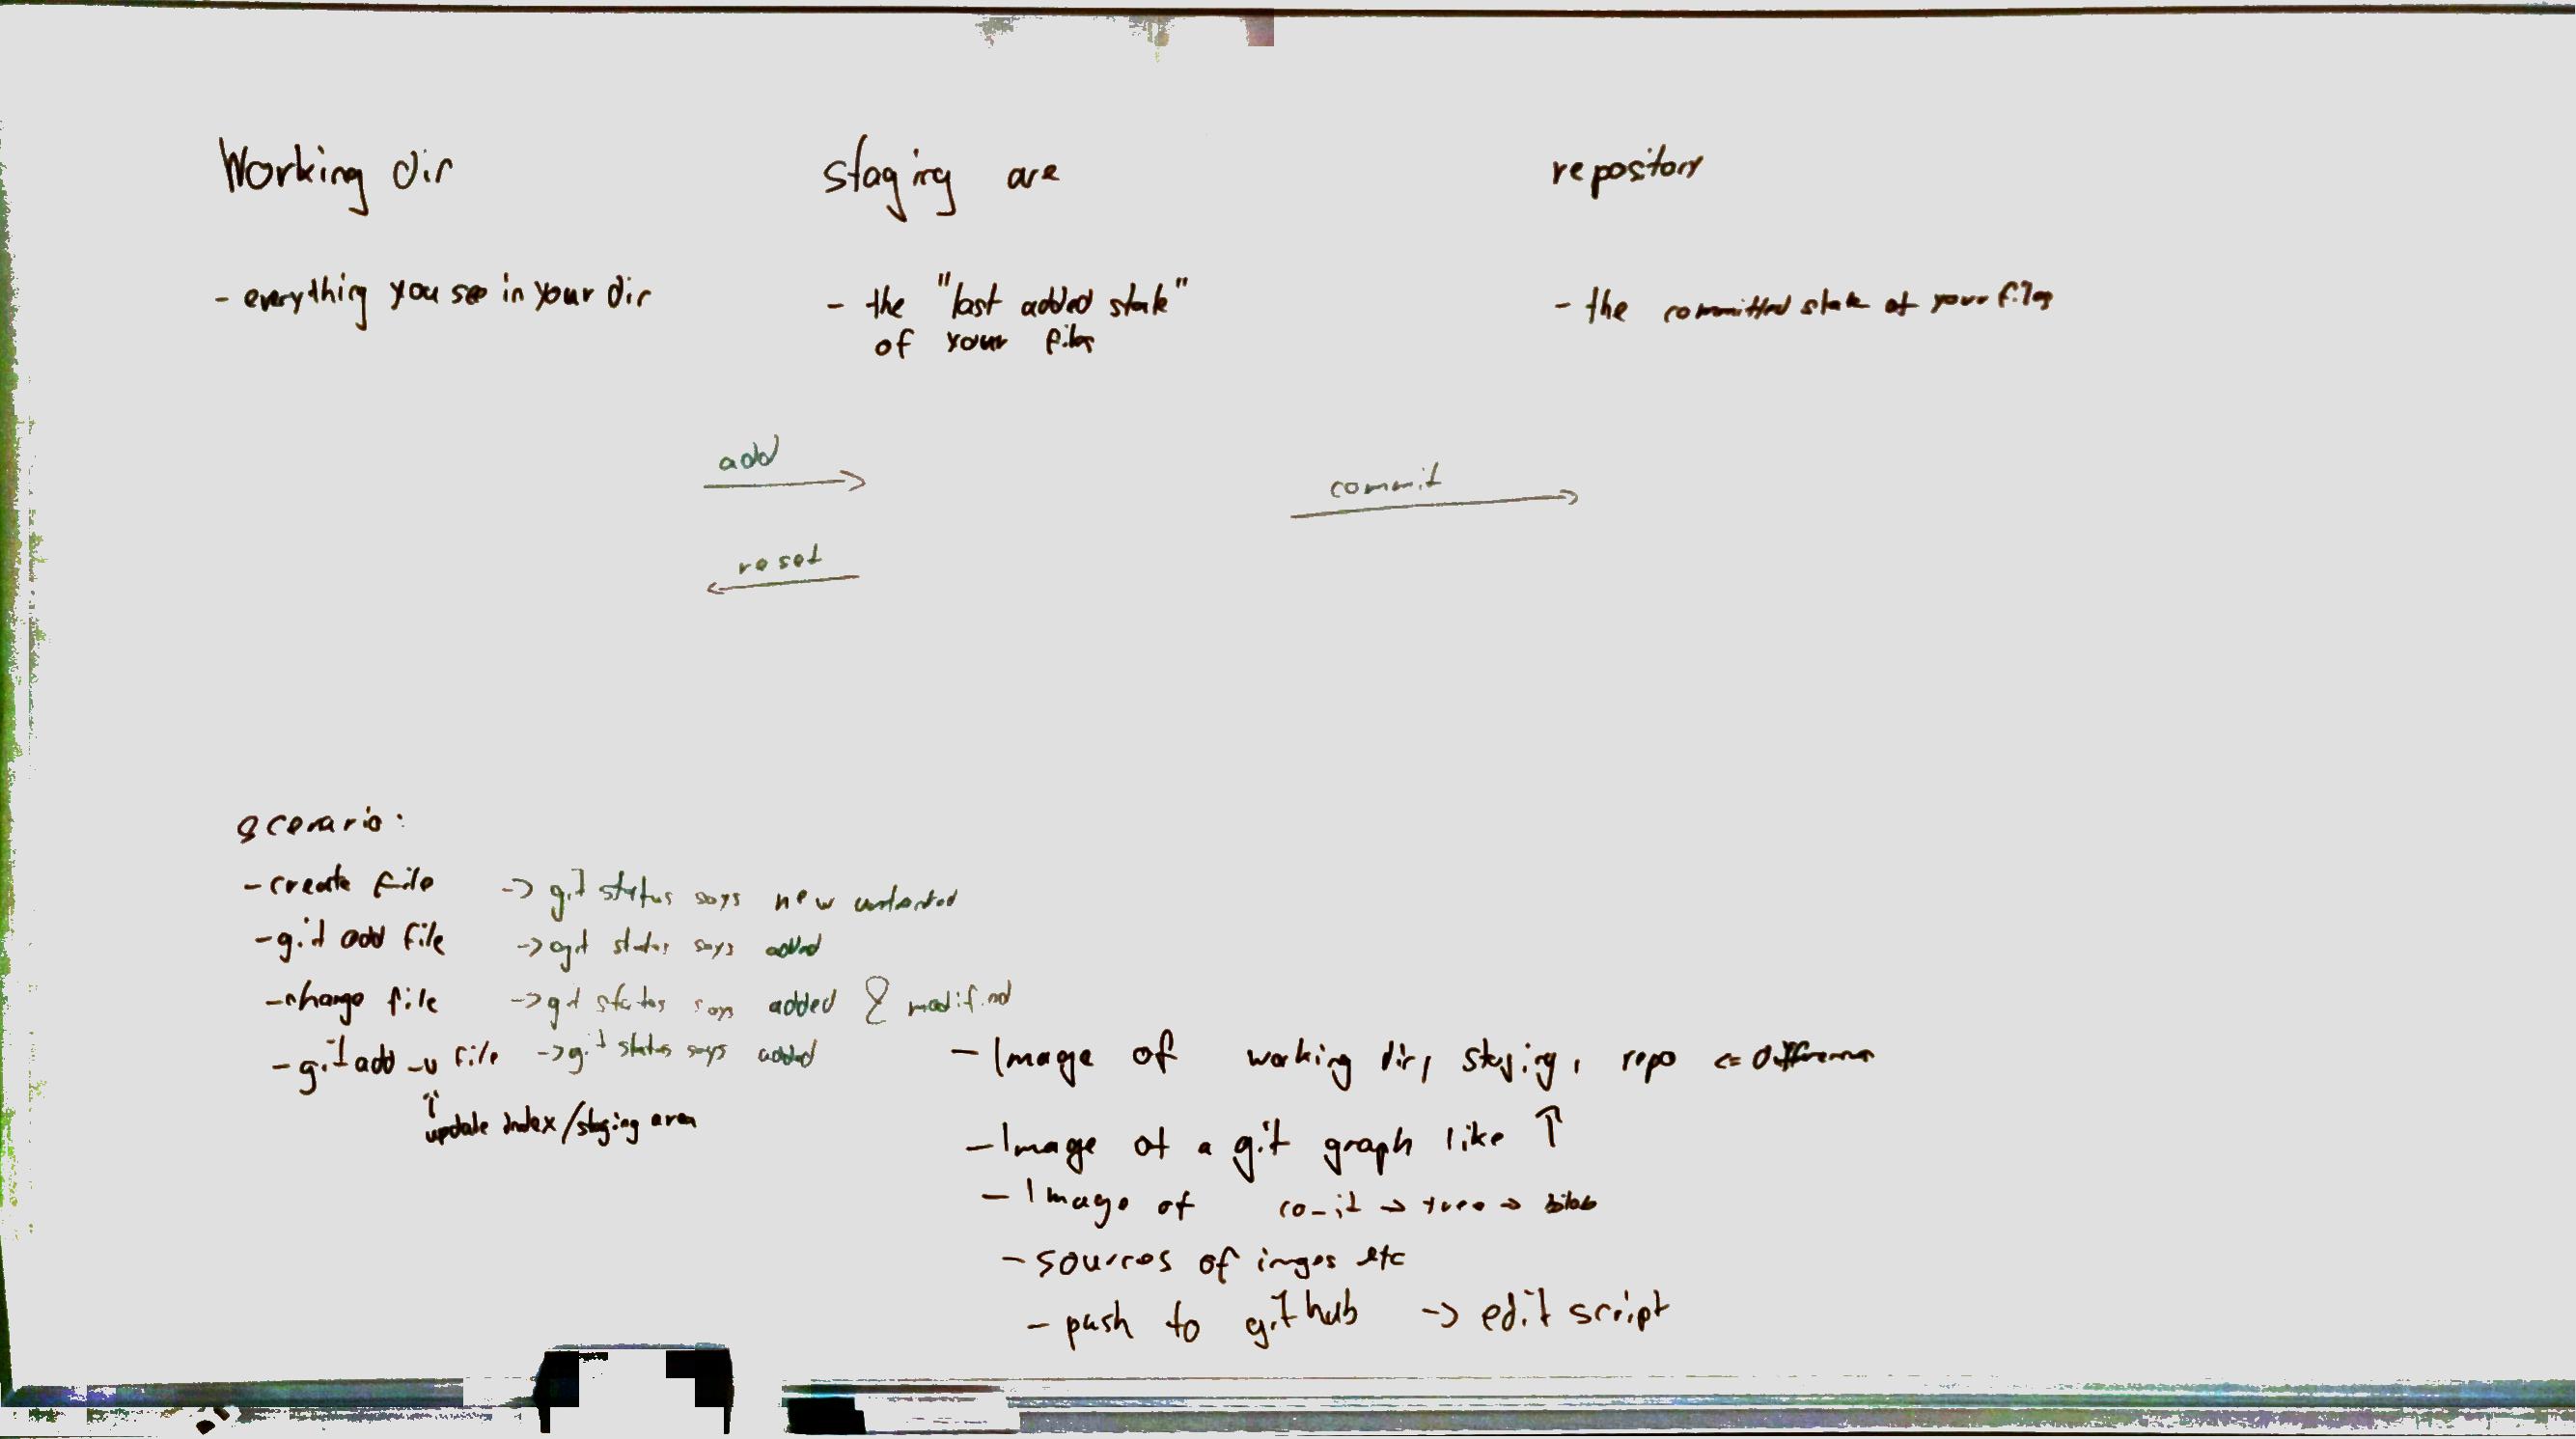 Working dir
staging are
repository
- everything you see in your dir
- the "last added state"
of your files
- the committed state of your files
add
commit
reset
scenario:
- create file -> git status says new untracked
- git add file -> git status says added
- change file -> git status says added & modified
- git add -u file -> git status says added
↑
update index/staging area
- Image of working dir, staging, repo <= Differences
- Image of a git graph like ↑
- Image of commit -> tree -> blob
- sources of images etc
- push to github -> edit script